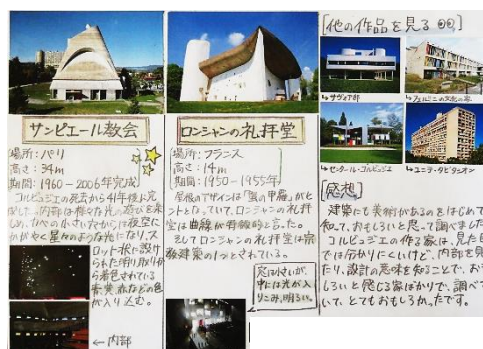 サンピエール教会
場所:パリ
高さ:34m
期間:1960-2006年完成
コルビュジエの死去から41年後に完
成した。内部は様々な光の遊びを楽
しめ、
かがやく星のような光
ロット状に設け
られた明り取りか
ら着色されている
黄赤などの色
が入り込む。
←内部
ロンシャンの礼拝堂
場所:フランス
高さ:14m
期間:1950-1955年
屋根のデザインは「蟹の甲羅」がヒ
ントとなっていて、ロンシャンの礼拝
堂は曲線が特徴的と言った。
そしてロンシャンの礼拝堂は宗
教建築の1つとされている。
窓は小さいが、
中には光が入
りこみ、明るい。
[他の作品を見る]
↳サヴォア邸
↳フェルミニの文化の家
↳センタール・コルビュジエ
↳ユニテ・ダビタシオン
[感想]
建築にも美術があるのをはじめて
知って、おもしろいと思って調べました
コルビュジエの作る家は、見た目
では分かりにくいけど、内部を見
たり、設計の意味を知ることで、おも
しろいと感じる家ばかりで、調べて
いて、とてもおもしろかったです。